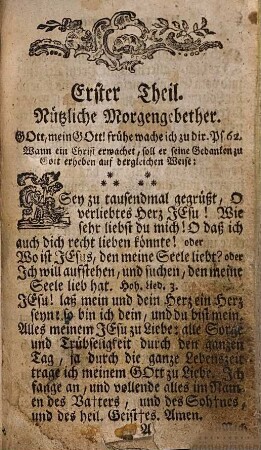 Erster Theil.
Nützliche Morgengebether.
GOtt, mein GOtt! frühe wache ich zu dir. Ps. 62.
Wann ein Christ erwachet, soll er seine Gedanken zu
Gott erheben auf dergleichen Weise:
* * *
* *
SEy zu tausendmal gegrüßt, O
verliebtes Herz JEsu! Wie
sehr liebst du mich! O daß ich
auch dich recht lieben könnte! oder
Wo ist JEsus, den meine Seele liebt? oder
Ich will aufstehen, und suchen, den meine
Seele lieb hat. Hoh. Lied. 3.
JEsu! laß mein und dein Herz ein Herz
seyn: so bin ich dein, und du bist mein.
Alles meinem JEsu zu Liebe: alle Sorge
und Trübseligkeit durch den ganzen
Tag, ja durch die ganze Lebenszeit
trage ich meinem GOtt zu Liebe. Ich
fange an, und vollende alles im Nam-
en des Va†ters, und des Soh†nes,
und des heil. Geist†es. Amen.
A